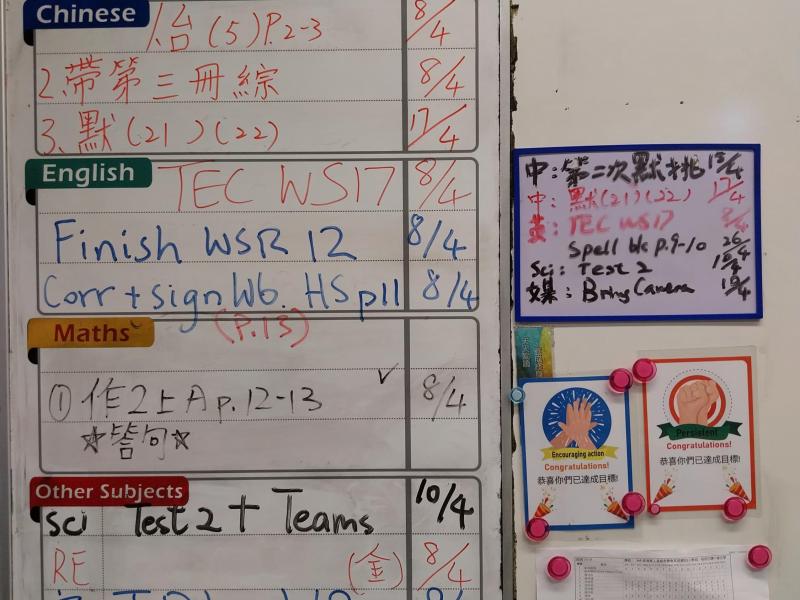 Chinese
(5) P.2-3 8/4
2. 帶第三冊綜 8/4
3. 默(21)(22) 17/4
English
TEC WS17 8/4
Finish WSR 12 8/4
Corr + sign Wb. HS p11 8/4
(P.13)
Maths
① 作2上A p.12-13 ✓ 8/4
☆答句☆
Other Subjects
Sci Test 2 + Teams 10/4
RE (金) 8/4
中: 第二次默 15/4
中: 默(21)(22) 17/4
英: TEC WS17 8/4
Spell bk p.9-10 26/4
Sci: Test 2
Bring Camera
Encouraging action
Congratulations!
恭喜你們已達成目標!
Persistent
Congratulations!
恭喜你們已達成目標!